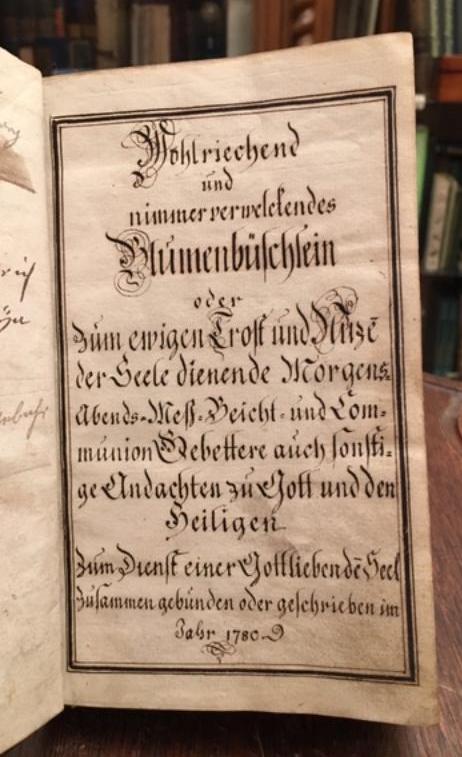 Wohlriechend
und
nimmer verwelckendes
Blumenbüschlein
oder
zum ewigen Trost und Nuzē
der Seele dienende Morgens-
Abends-Meß-Beicht-und Com-
munion Gebettere auch sonsti-
ge Andachten zu Gott und den
Heiligen
Zum Dienst einer Gottliebendē Seel
zusammen gebunden oder geschrieben im
Jahr 1780